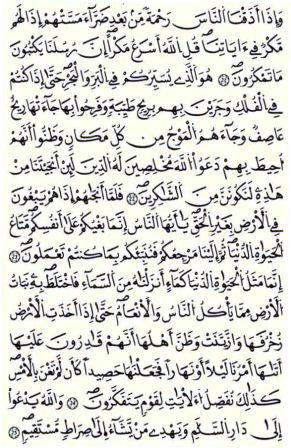 وَإِذَآ أَذَقْنَا ٱلنَّاسَ رَحْمَةً مِّنۢ بَعْدِ ضَرَّآءَ مَسَّتْهُمْ إِذَا لَهُم
مَّكْرٌ فِىٓ ءَايَاتِنَا قُلِ ٱللَّهُ أَسْرَعُ مَكْرًا إِنَّ رُسُلَنَا يَكْتُبُونَ
مَا تَمْكُرُونَ ۝٢١ هُوَ ٱلَّذِى يُسَيِّرُكُمْ فِى ٱلْبَرِّ وَٱلْبَحْرِ حَتَّىٰٓ إِذَا كُنتُمْ
فِى ٱلْفُلْكِ وَجَرَيْنَ بِهِم بِرِيحٍ طَيِّبَةٍ وَفَرِحُوا۟ بِهَا جَآءَتْهَا رِيحٌ
عَاصِفٌ وَجَآءَهُمُ ٱلْمَوْجُ مِن كُلِّ مَكَانٍ وَظَنُّوٓا۟ أَنَّهُمْ
أُحِيطَ بِهِمْ دَعَوُا۟ ٱللَّهَ مُخْلِصِينَ لَهُ ٱلدِّينَ لَئِنْ أَنجَيْتَنَا مِنْ
هَٰذِهِۦ لَنَكُونَنَّ مِنَ ٱلشَّٰكِرِينَ ۝٢٢ فَلَمَّآ أَنجَىٰهُمْ إِذَا هُمْ يَبْغُونَ
فِى ٱلْأَرْضِ بِغَيْرِ ٱلْحَقِّ يَٰٓأَيُّهَا ٱلنَّاسُ إِنَّمَا بَغْيُكُمْ عَلَىٰٓ أَنفُسِكُم مَّتَٰعَ
ٱلْحَيَوٰةِ ٱلدُّنْيَا ثُمَّ إِلَيْنَا مَرْجِعُكُمْ فَنُنَبِّئُكُم بِمَا كُنتُمْ تَعْمَلُونَ ۝٢٣
إِنَّمَا مَثَلُ ٱلْحَيَوٰةِ ٱلدُّنْيَا كَمَآءٍ أَنزَلْنَٰهُ مِنَ ٱلسَّمَآءِ فَٱخْتَلَطَ بِهِۦ نَبَاتُ
ٱلْأَرْضِ مِمَّا يَأْكُلُ ٱلنَّاسُ وَٱلْأَنْعَٰمُ حَتَّىٰٓ إِذَآ أَخَذَتِ ٱلْأَرْضُ
زُخْرُفَهَا وَٱزَّيَّنَتْ وَظَنَّ أَهْلُهَآ أَنَّهُمْ قَٰدِرُونَ عَلَيْهَآ
أَتَىٰهَآ أَمْرُنَا لَيْلًا أَوْ نَهَارًا فَجَعَلْنَٰهَا حَصِيدًا كَأَن لَّمْ تَغْنَ بِٱلْأَمْسِ
كَذَٰلِكَ نُفَصِّلُ ٱلْءَايَٰتِ لِقَوْمٍ يَتَفَكَّرُونَ ۝٢٤ وَٱللَّهُ يَدْعُوٓا۟
إِلَىٰ دَارِ ٱلسَّلَٰمِ وَيَهْدِى مَن يَشَآءُ إِلَىٰ صِرَٰطٍ مُّسْتَقِيمٍ ۝٢٥